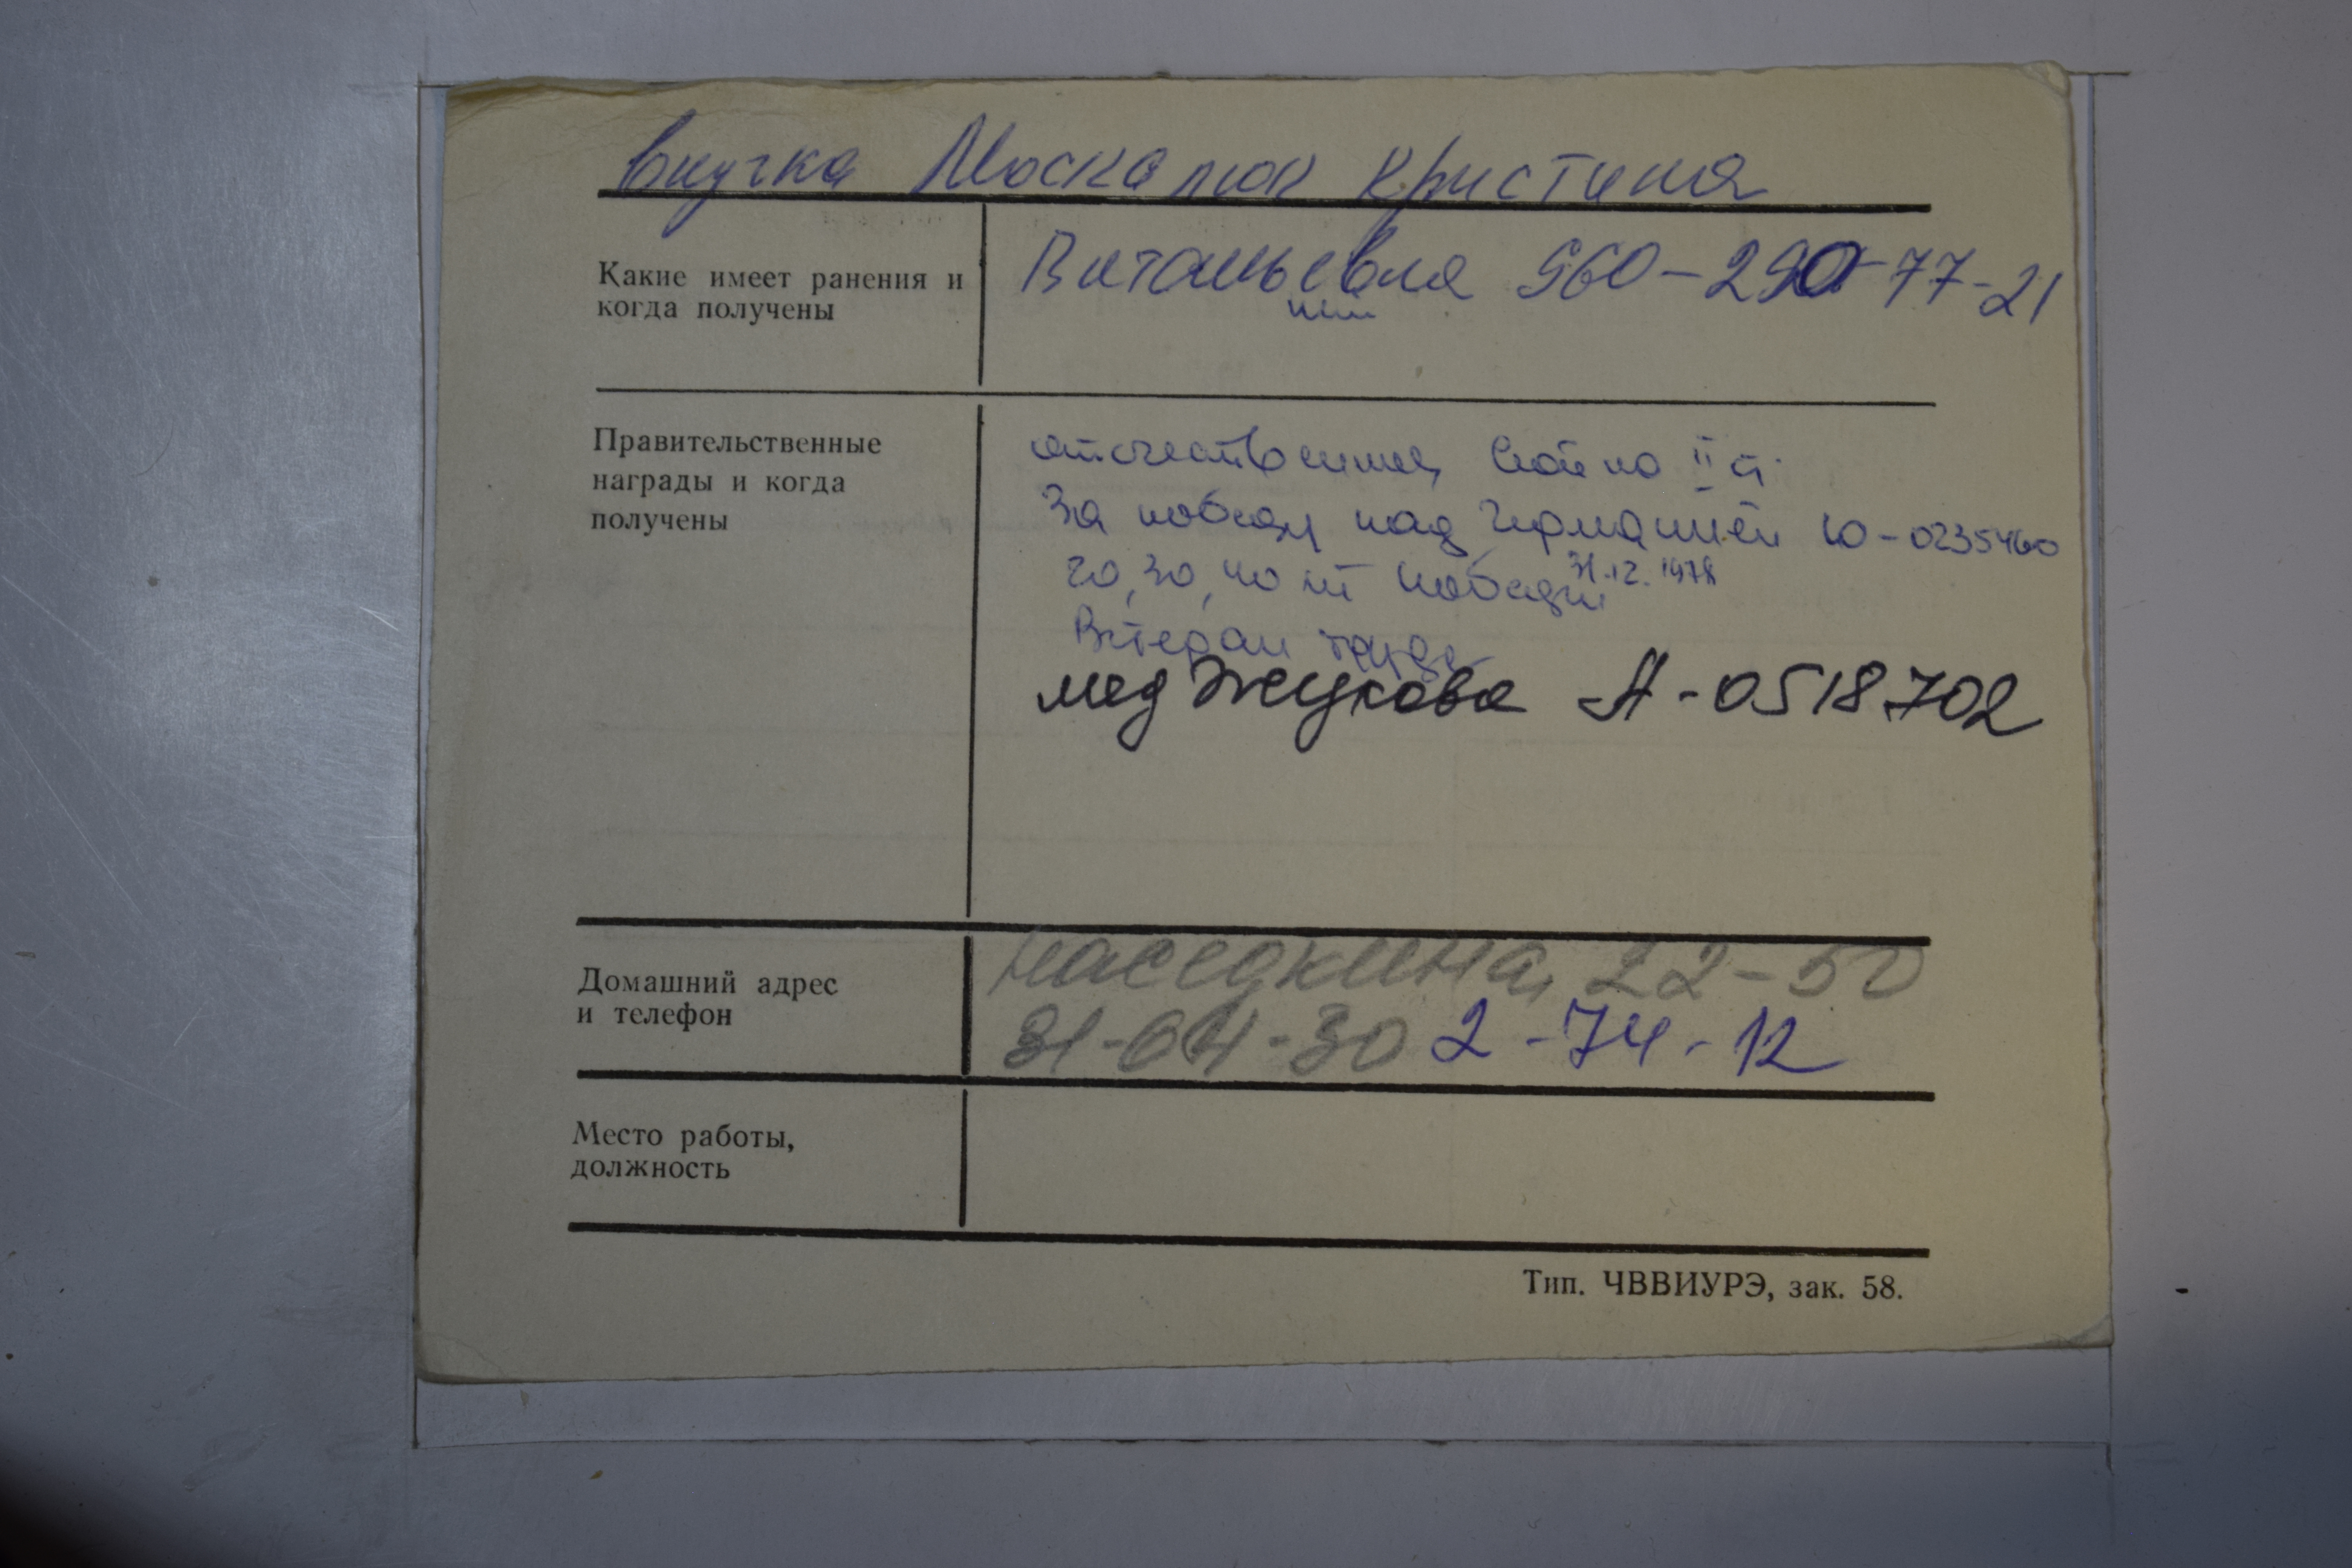 внучка Москалюк Кристина
Какие имеет ранения и
когда получены
Витальевна 960-290-77-21
Правительственные
награды и когда
получены
отечественная война II ст.
За победу над Германией Ю-0235460
20, 30, 40 лет победы 31.12.1978
Ветеран труда
мед Жукова А-0518702
Домашний адрес
и телефон
Наседкина, 22-50
31-04-30 2-74-12
Место работы,
должность
Тип. ЧВВИУРЭ, зак. 58.